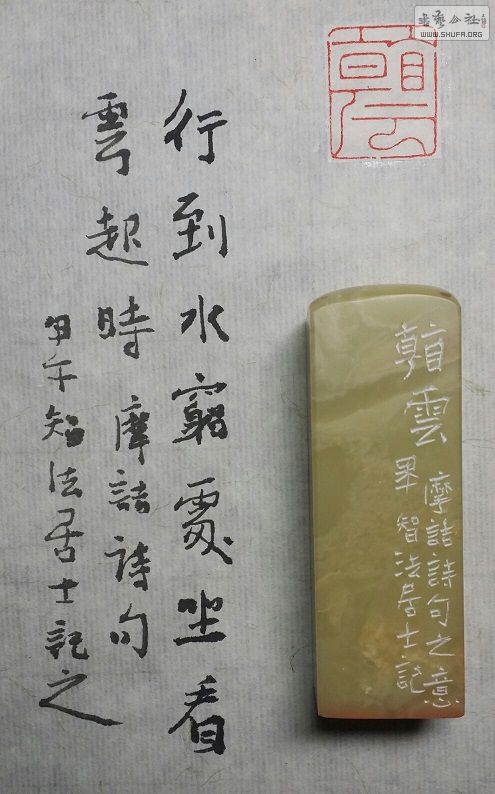 書藝公社
WWW.SHUFA.ORG
行到水窮處坐看
雲起時 摩詰詩句
甲午智法居士記之
雲
摩詰詩句之意
智法居士記